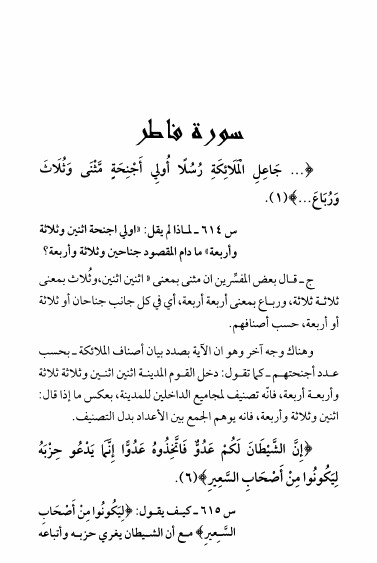 سورة فاطر
﴿... جَاعِلِ الْمَلَائِكَةِ رُسُلًا أُولِي أَجْنِحَةٍ مَّثْنَى وَثُلَاثَ
وَرُبَاعَ...﴾(١).
س ٦١٤ ـ لماذا لم يقل: «اولي اجنحة اثنين وثلاثة
وأربعة» ما دام المقصود جناحين وثلاثة وأربعة؟
ج ـ قال بعض المفسِّرين ان مثنى بمعنى « اثنين اثنين، وثُلاث بمعنى
ثلاثة ثلاثة، ورباع بمعنى أربعة أربعة، أي في كل جانب جناحان أو ثلاثة
أو أربعة، حسب أصنافهم.
وهناك وجه آخر وهو ان الآية بصدد بيان أصناف الملائكة ـ بحسب
عدد أجنحتهم ـ كما تقول: دخل القوم المدينة اثنين اثنين وثلاثة ثلاثة
وأربعة أربعة، فانّه تصنيف لمجاميع الداخلين للمدينة، بعكس ما إذا قال:
اثنين وثلاثة وأربعة، فانه يوهم الجمع بين الأعداد بدل التصنيف.
﴿إِنَّ الشَّيْطَانَ لَكُمْ عَدُوٌّ فَاتَّخِذُوهُ عَدُوًّا إِنَّمَا يَدْعُو حِزْبَهُ
لِيَكُونُوا مِنْ أَصْحَابِ السَّعِيرِ﴾(٦).
س ٦١٥ ـ كيف يقول: ﴿لِيَكُونُوا مِنْ أَصْحَابِ
السَّعِيرِ﴾ مع أن الشيطان يغري حزبه وأتباعه